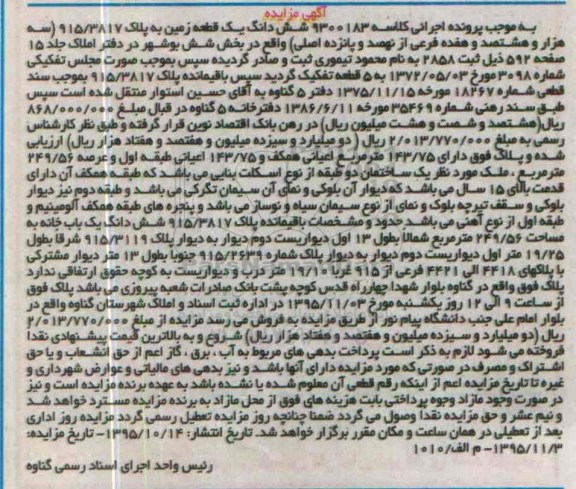 آگهی مزایده
به موجب پرونده اجرائی کلاسه 9300183 شش دانگ یک قطعه زمین به پلاک 915/3817 (سه
هزار و هشتصد و هفده فرعی از نهصد و پانزده اصلی) واقع در بخش شش بوشهر در دفتر املاک جلد 15
صفحه 592 ذیل ثبت 2858 به نام محمود تیموری ثبت و صادر گردیده سپس بموجب صورت مجلس تفکیکی
شماره 3098 مورخ 1372/05/03 به 5 قطعه تفکیک گردید سپس باقیمانده پلاک 915/3817 بموجب سند
قطعی شماره 18267 مورخه 1375/11/15 دفتر 5 گناوه به آقای حسین استوار منتقل شده است سپس
طبق سند رهنی شماره 35469 مورخه 1386/6/11 دفترخانه 5 گناوه در قبال مبلغ 868/000/000
ریال(هشتصد و شصت و هشت میلیون ریال) در رهن بانک اقتصاد نوین قرار گرفته و طبق نظر کارشناس
رسمی به مبلغ 2/013/770/000 ریال ( دو میلیارد و سیزده میلیون و هفتصد و هفتاد هزار ریال) ارزیابی
شده و پلاک فوق دارای 143/75 مترمربع اعیانی همکف و 143/75 اعیانی طبقه اول و عرصه 249/56
مترمربع ، ملک مورد نظر یک ساختمان دو طبقه از نوع اسکلت بنایی می باشد که طبقه همکف آن دارای
قدمت بالای 15 سال می باشد که دیوار آن بلوکی و نمای آن سیمان تگرگی می باشد و طبقه دوم نیز دیوار
بلوکی و سقف تیرچه بلوک و نمای از نوع سیمان سیاه و نوساز می باشد و پنجره های طبقه همکف آلومینیم و
طبقه اول از نوع آهنی می باشد حدود و مشخصات باقیمانده پلاک 915/3817 شش دانگ یک باب خانه به
مساحت 249/56 مترمربع شمالا بطول 13 اول دیواریست دوم دیوار به دیوار پلاک 915/3119 شرقا بطول
19/25 متر اول دیواریست دوم دیوار به دیوار پلاک شماره 915/2639 جنوبا بطول 13 متر دیوار مشترکی
با پلاکهای 4418 الی 4421 فرعی از 915 غربا 19/10 متر درب و دیواریست به کوچه حقوق ارتفاقی ندارد
پلاک فوق واقع در گناوه بلوار شهدا چهارراه قدس کوچه پشت بانک صادرات شعبه پیروزی می باشد پلاک فوق
از ساعت 9 الی 12 روز یکشنبه مورخ 1395/11/03 در اداره ثبت اسناد و املاک شهرستان گناوه واقع در
بلوار امام علی جنب دانشگاه پیام نور از طریق مزایده به فروش می رسد مزایده از مبلغ 2/013/770/000
ریال (دو میلیارد و سیزده میلیون و هفتصد و هفتاد هزار ریال) شروع و به بالاترین قیمت پیشنهادی نقدا
فروخته می شود لازم به ذکر است پرداخت بدهی های مربوط به آب ، برق ، گاز اعم از حق انشعاب و یا حق
اشتراک و مصرف در صورتی که مورد مزایده دارای آنها باشد و نیز بدهی های مالیاتی و عوارض شهرداری و
غیره تا تاریخ مزایده اعم از اینکه رقم قطعی آن معلوم شده یا نشده باشد به عهده برنده مزایده است و نیز
در صورت وجود مازاد وجوه پرداختی بابت هزینه های فوق از محل مازاد به برنده مزایده مسترد خواهد شد
و نیم عشر و حق مزایده نقدا وصول می گردد ضمنا چنانچه روز مزایده تعطیل رسمی گردد مزایده روز اداری
بعد از تعطیلی در همان ساعت و مکان مقرر برگزار خواهد شد. تاریخ انتشار: 1395/10/14- تاریخ مزایده:
1395/11/3- م الف/1010
رئیس واحد اجرای اسناد رسمی گناوه